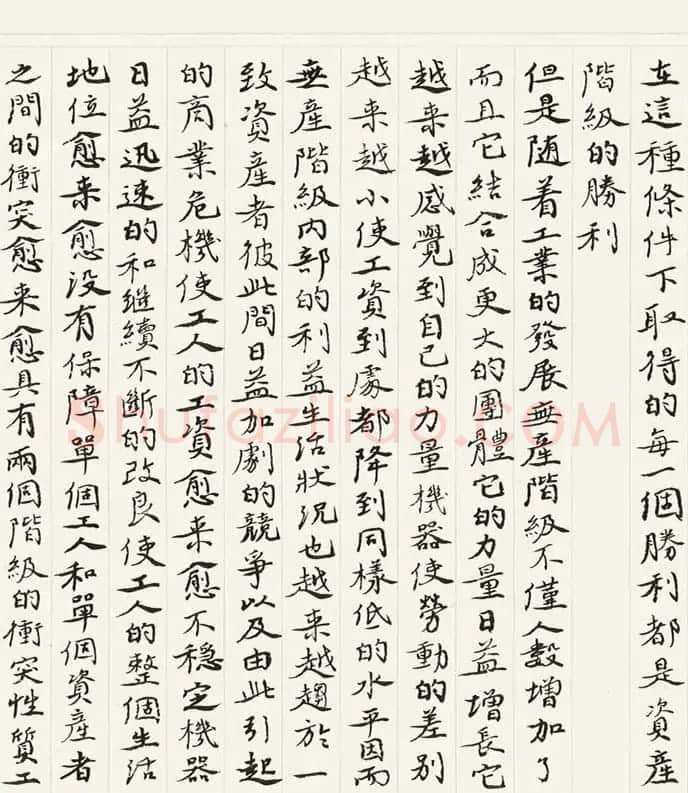 在這種條件下取得的每一個勝利都是資產
階級的勝利
但是随着工業的發展無產階級不僅人數增加了
而且它結合成更大的團體它的力量日益增長它
越来越感覺到自己的力量機器使勞動的差别
越来越小使工資到處都降到同樣低的水平因而
無產階級内部的利益生活狀况也越来越趨於一
致資產者彼此間日益加劇的競爭以及由此引起
的商業危機使工人的工資愈来愈不穩定機器
日益迅速的和継續不斷的改良使工人的整個生活
地位愈来愈没有保障單個工人和單個資產者
之間的衝突愈来愈具有兩個階級的衝突性質工
shufaziliao.COM